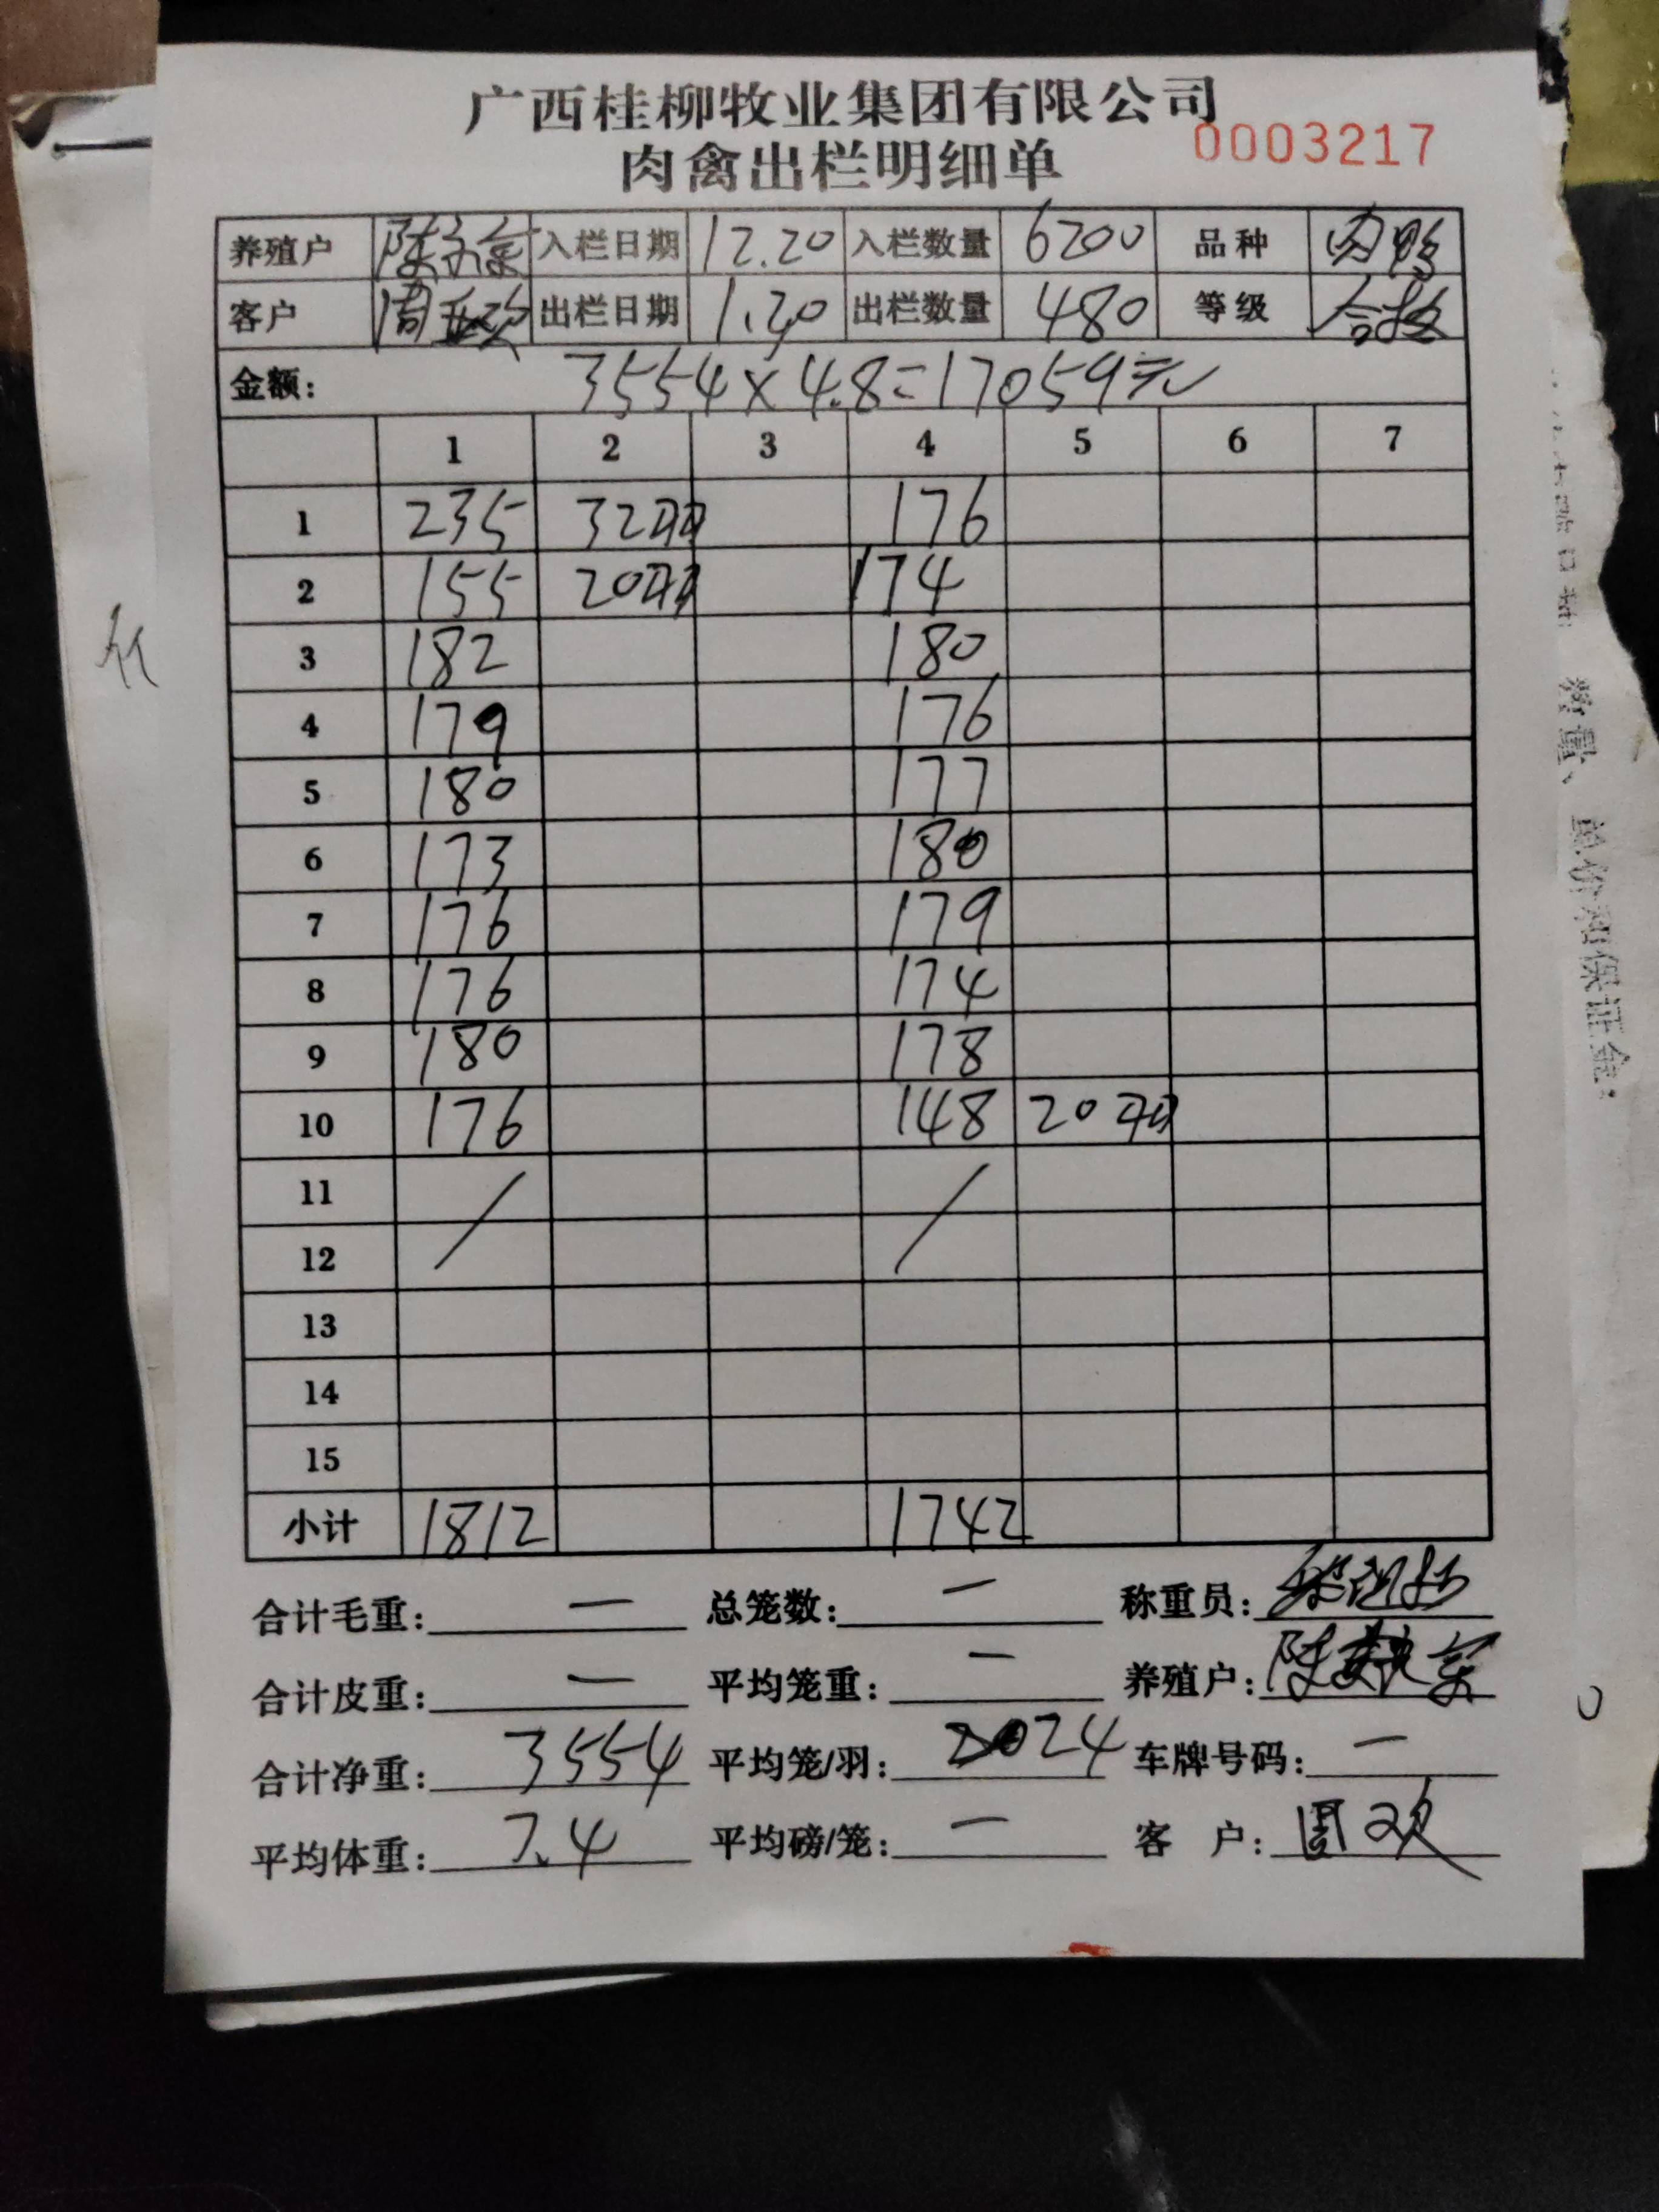 广西桂柳牧业集团有限公司
肉禽出栏明细单 0003217
养殖户 陈 入栏日期 12.20 入栏数量 6200 品种 肉鸭
客户 周 出栏日期 1.20 出栏数量 480 等级 合格
金额: 3554×4.8=17059元
1 2 3 4 5 6 7
1 235 32羽 176
2 155 20羽 174
3 182 180
4 179 176
5 180 177
6 173 180
7 176 179
8 176 174
9 180 178
10 176 148 20羽
11 / /
12
13
14
15
小计 1812 1742
合计毛重: — 总笼数: — 称重员:
合计皮重: — 平均笼重: — 养殖户: 陈
合计净重: 3554 平均笼/羽: 24 车牌号码: —
平均体重: 7.4 平均磅/笼: — 客 户: 周欢
数量、单价和保证金: